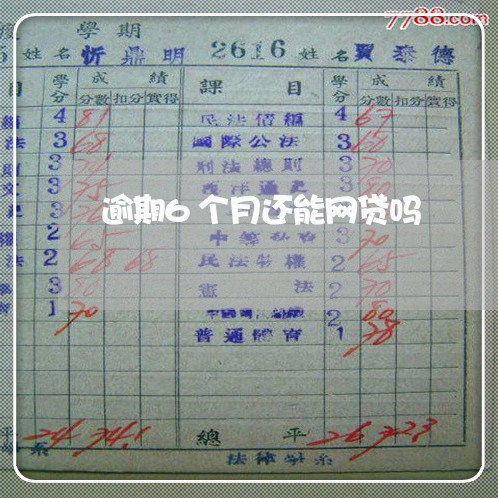 7788.com
學期
姓名 忻鼎明 2616 姓名 賈泰德
目 學分 成績 課目 學分 成績
分數 扣分 實得 分數 扣分 實得
4 81 民法債編 4 67
法 3 68 國際公法 3 60
3 刑法總則 3 70
3 75 西洋通史 3 80
3
逾期6个月还能网贷吗
2 65 3 70
法 2 68 68 民法物權 2 65
3 80 憲法 2 70
1 70 2 80
普通體育 1 78
平 24 74.1 總平 26 72.3
系 法律學系